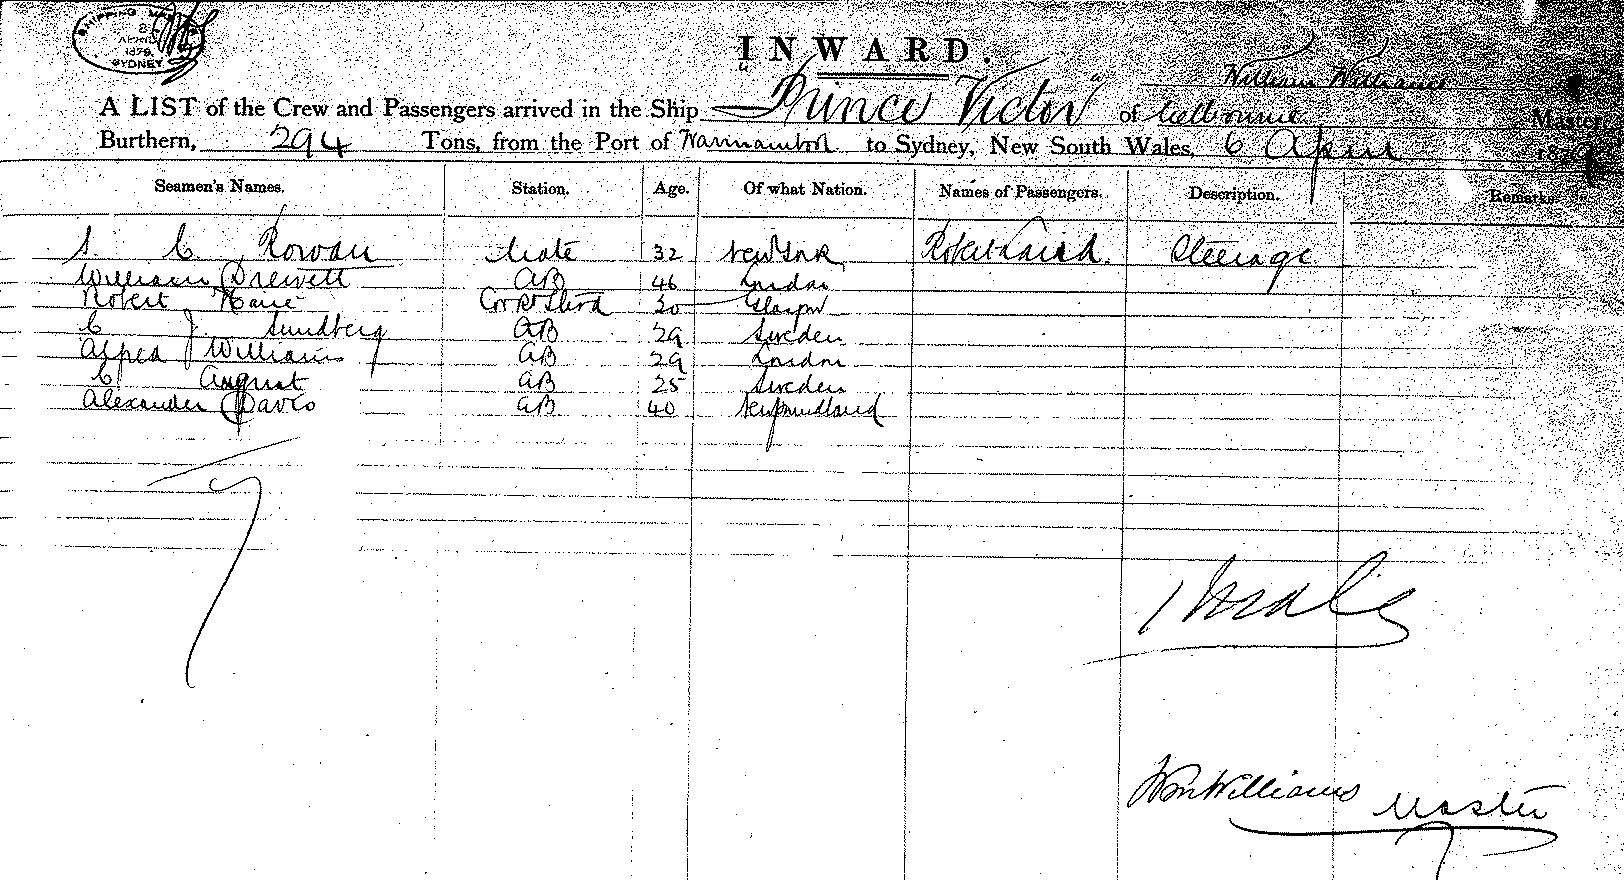 SHIPPING
APRIL
1879
SYDNEY
INWARD.
William Williams
A LIST of the Crew and Passengers arrived in the Ship "Prince Victor" of Melbourne Master,
Burthern, 294 Tons, from the Port of Warrnambool to Sydney, New South Wales, 6 April 1879
Seamen's Names. Station. Age. Of what Nation. Names of Passengers. Description. Remarks.
S C Rowan Mate 32 New York Robert Laird. Steerage
William Drewett AB 46 London
Robert Cook & Stwd 30 Glasgow
C J Sundberg AB 29 Sweden
Alfred Williams AB 29 London
C August AB 25 Sweden
Alexander Davis AB 40 Newfoundland
Wm Williams Master